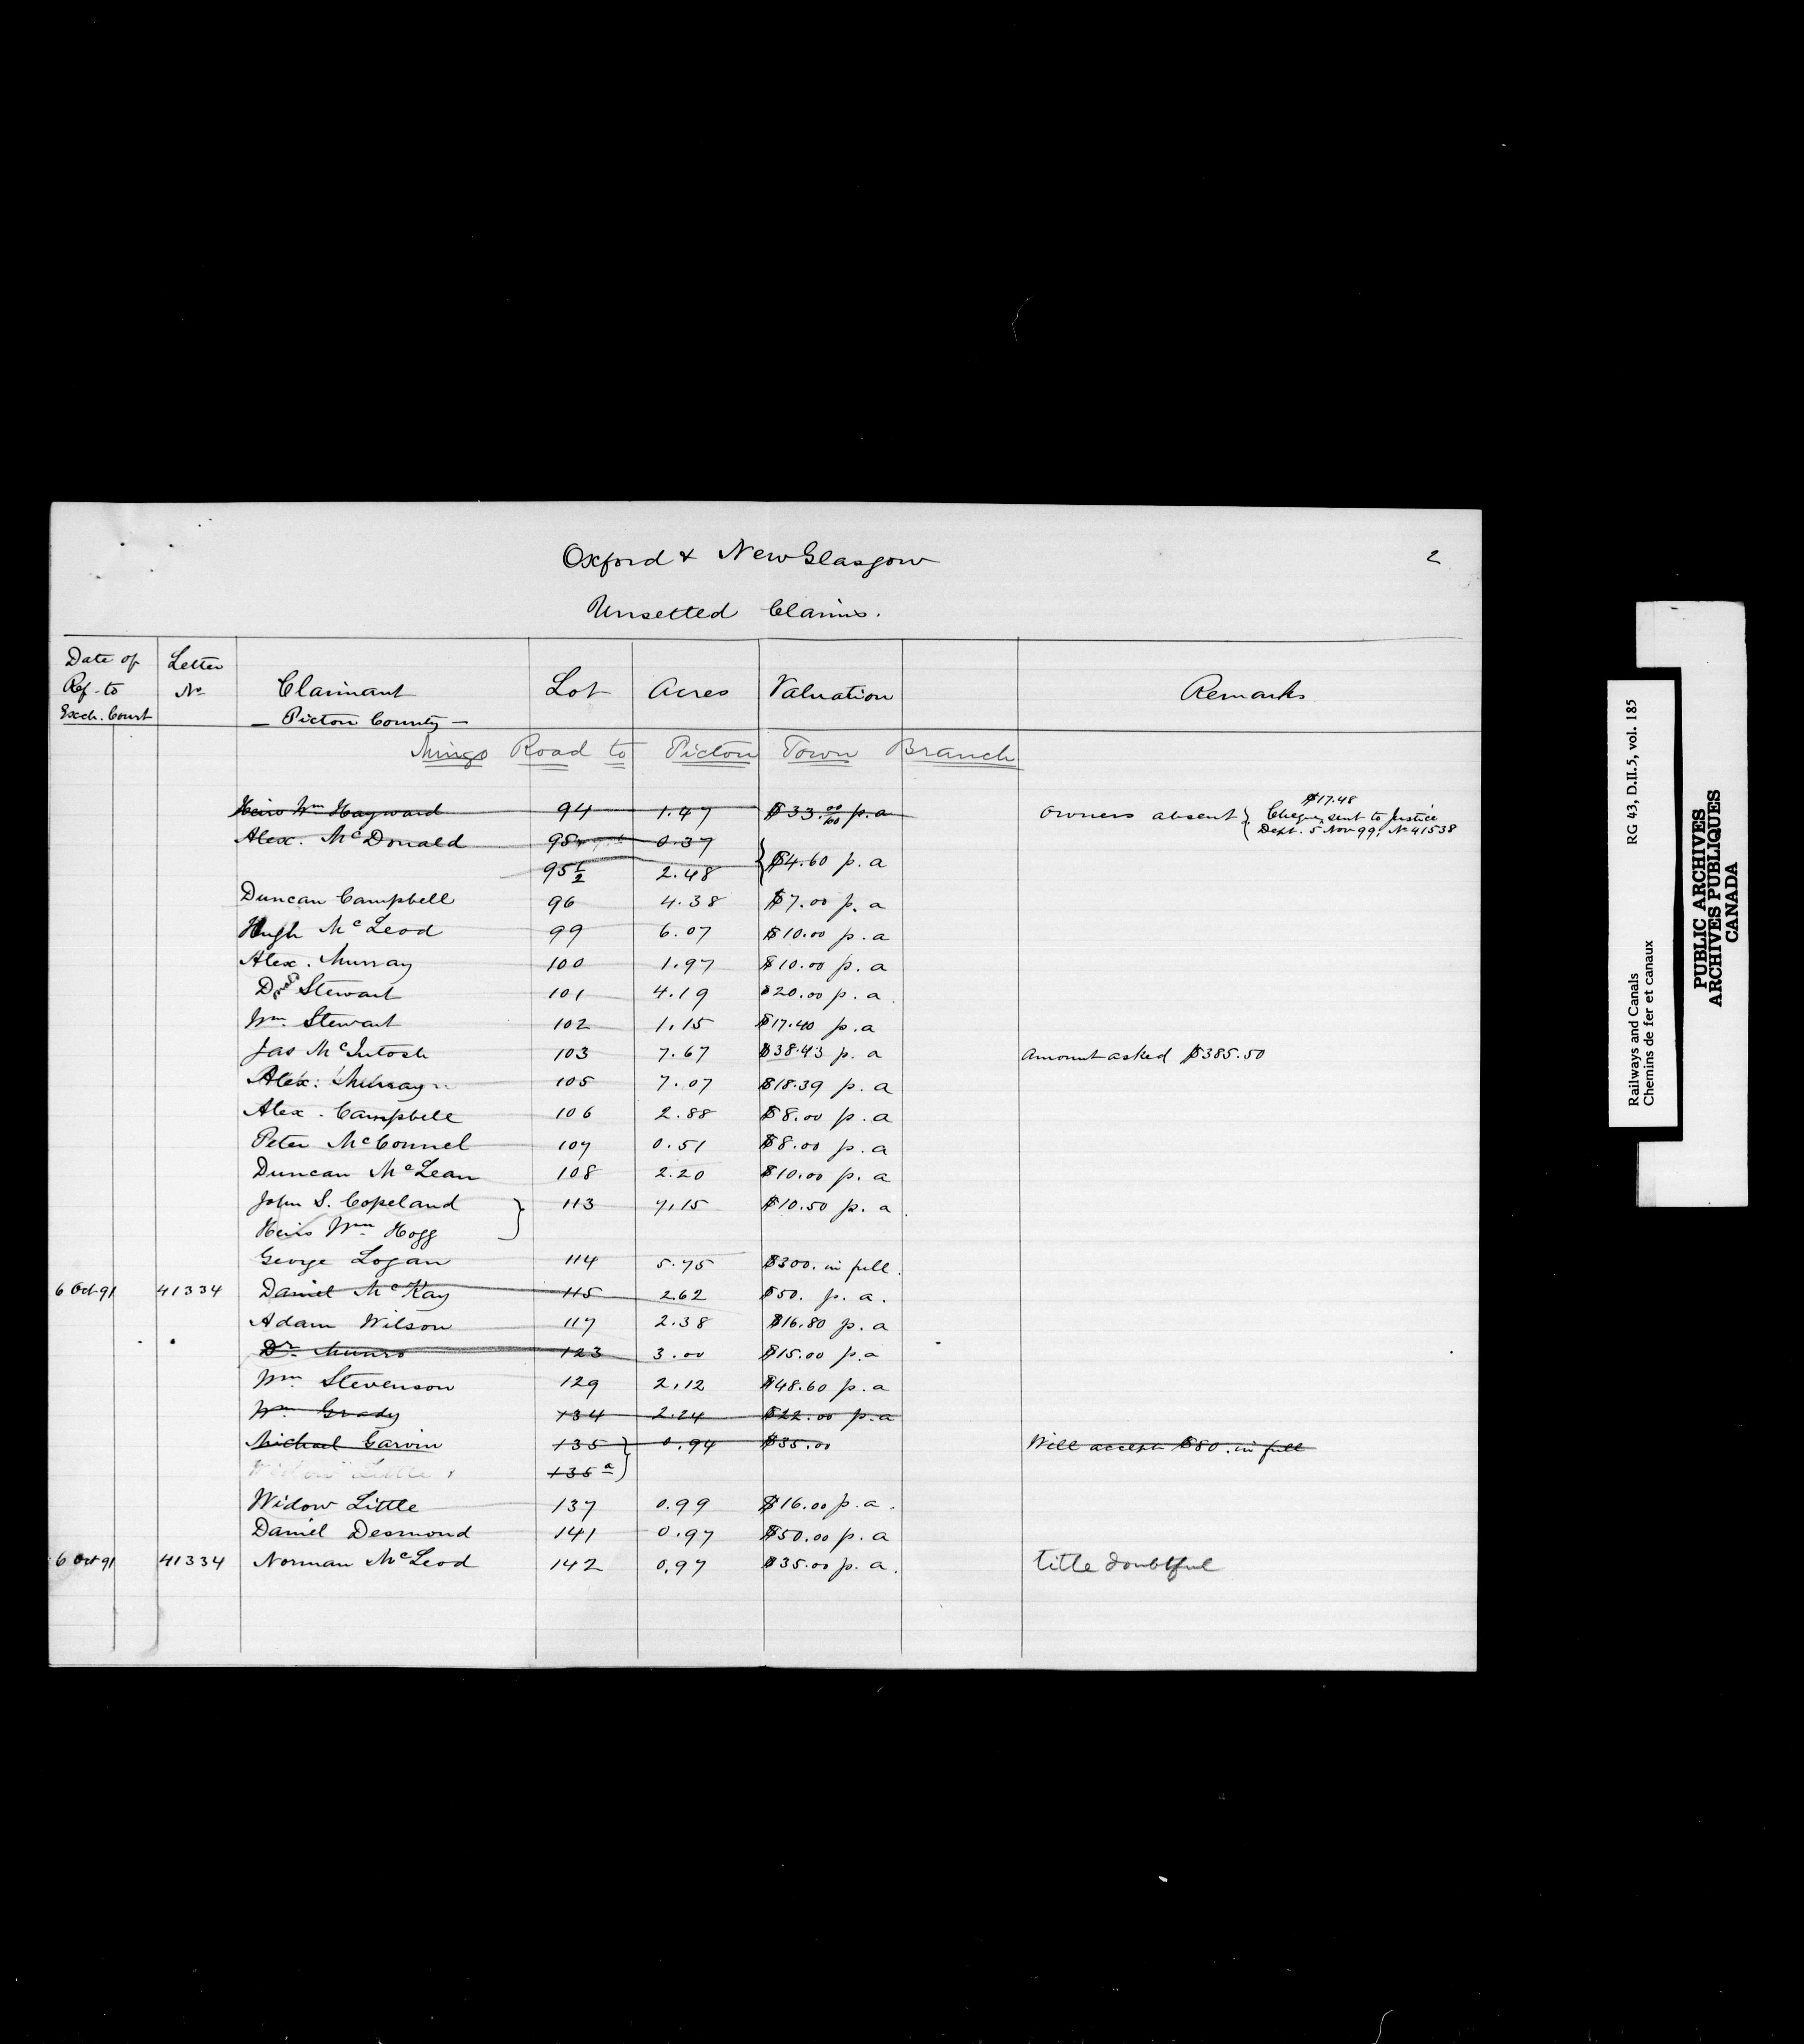 Oxford & New Glasgow 2
Unsetted Claims.
Date of Ref. to Exch. Court Letter No Claimant Lot Acres Valuation Remarks
— Pictou County —
Mingo Road to Pictou Town Branch
Heirs Wm Hayward 94 1.47 $33.00/100 p.a Owners absent { $17.48 Cheque sent to Justice
Dept. 5 Nov 99, No 41538
Alex. McDonald 95 0.37
95½ 2.48 } $4.60 p. a
Duncan Campbell 96 4.38 $7.00 p. a
Hugh McLeod 99 6.07 $10.00 p. a
Alex. Murray 100 1.97 $10.00 p. a
Stewart 101 4.19 $20.00 p. a.
Wm. Stewart 102 1.15 $17.40 p. a
Jas McIntosh 103 7.67 $38.43 p. a amount asked $385.50
Alex. Murray 105 7.07 $18.39 p. a
Alex. Campbell 106 2.88 $8.00 p. a
Peter McConnel 107 0.51 $8.00 p. a
Duncan McLean 108 2.20 $10.00 p. a
John S. Copeland } 113 7.15 $10.50 p. a.
Heirs Wm. Hogg
George Logan 114 5.75 $300. in full.
6 Oct 91 41334 Daniel McKay 115 2.62 $50. p. a.
Adam Wilson 117 2.38 $16.80 p. a
Dr. Munro 123 3.00 $15.00 p. a
Wm. Stevenson 129 2.12 $48.60 p. a
Wm. Grady 134 2.24 $22.00 p. a
Michael Garvin 135 } 0.94 $35.00 Will accept $80. in full
Widow Little 135a
Widow Little 137 0.99 $16.00 p. a.
Daniel Desmond 141 0.97 $50.00 p. a
6 Oct 91 41334 Norman McLeod 142 0.97 $35.00 p. a. title doubtful
Railways and Canals RG 43, D.II.5, vol. 185
Chemins de fer et canaux
PUBLIC ARCHIVES
ARCHIVES PUBLIQUES
CANADA